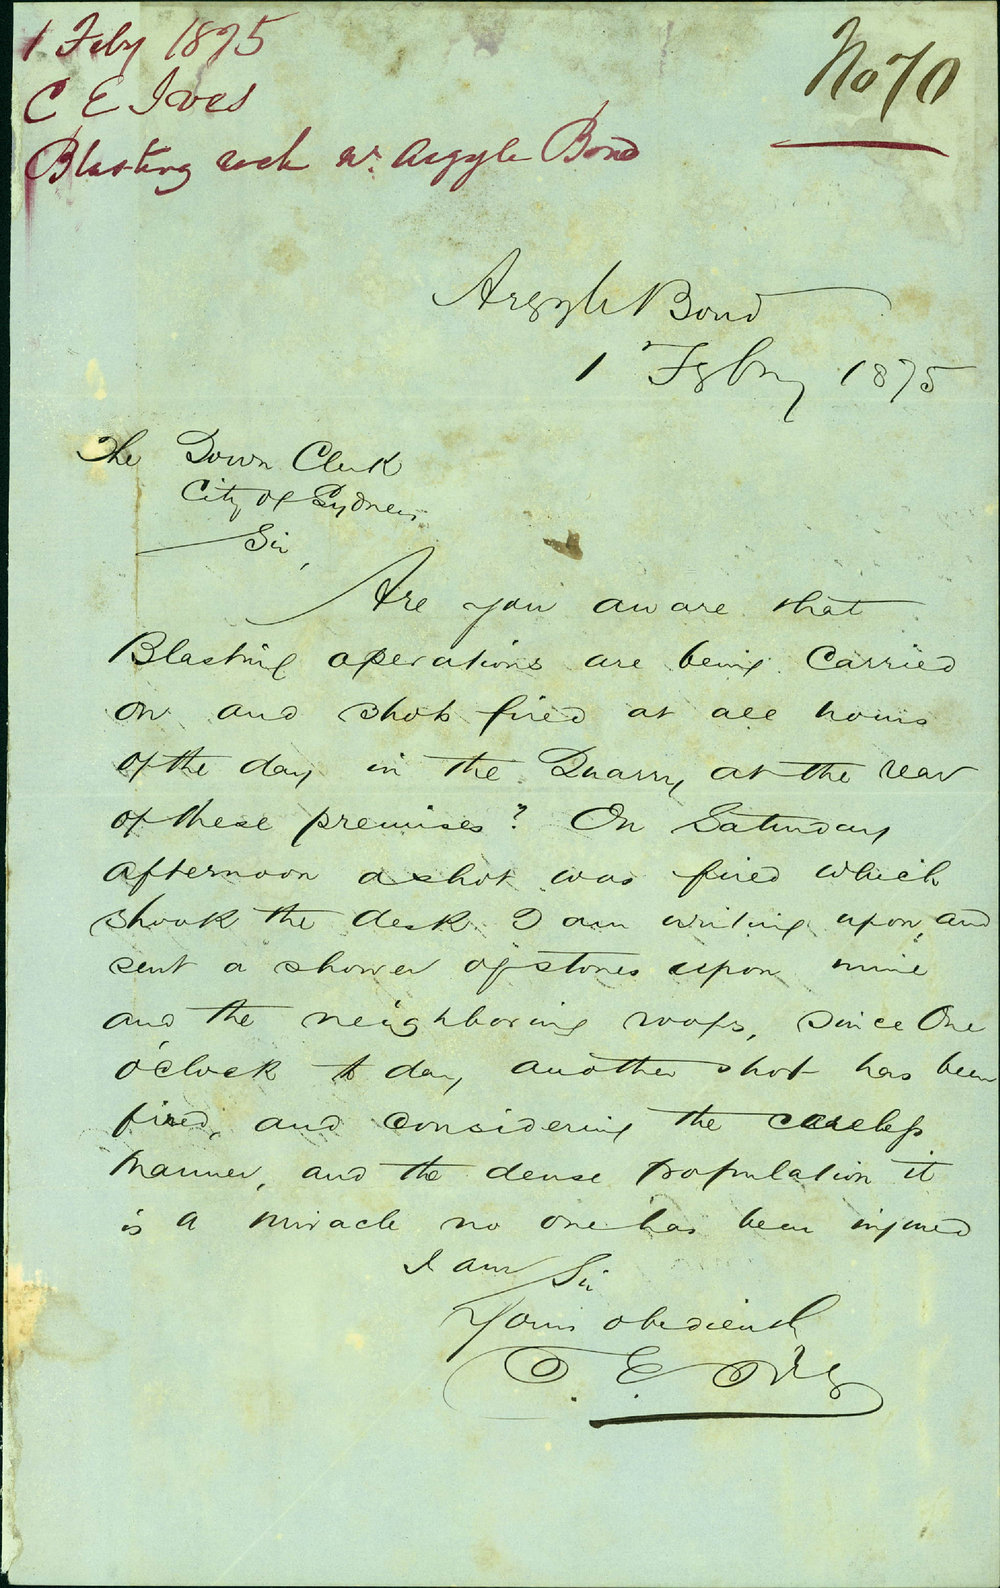 1 Feby 1875
C E Ives
Blasting rock nr. Argyle Bond
No 70
Argyle Bond
1 Feby 1875
The Town Clerk
City of Sydney
Sir,
Are you aware that
Blasting operations are being carried
on and shots fired at all hours
of the day in the Quarry at the rear
of these premises? On Saturday
afternoon a shot was fired which
shook the desk I am writing upon, and
sent a shower of stones upon mine
and the neighboring roofs, since One
o'clock to day another shot has been
fired, and considering the careless
manner, and the dense population it
is a miracle no one has been injured
I am Sir
Yours obediently
C. E. Ives